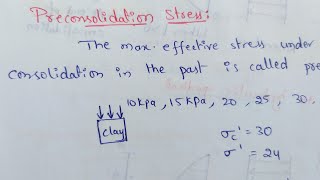 Preconsolidation Stress:
The max. effective stress under
consolidation in the past is called pre
10kpa, 15kPa, 20, 25, 30,
clay
σc' = 30
σ' = 24